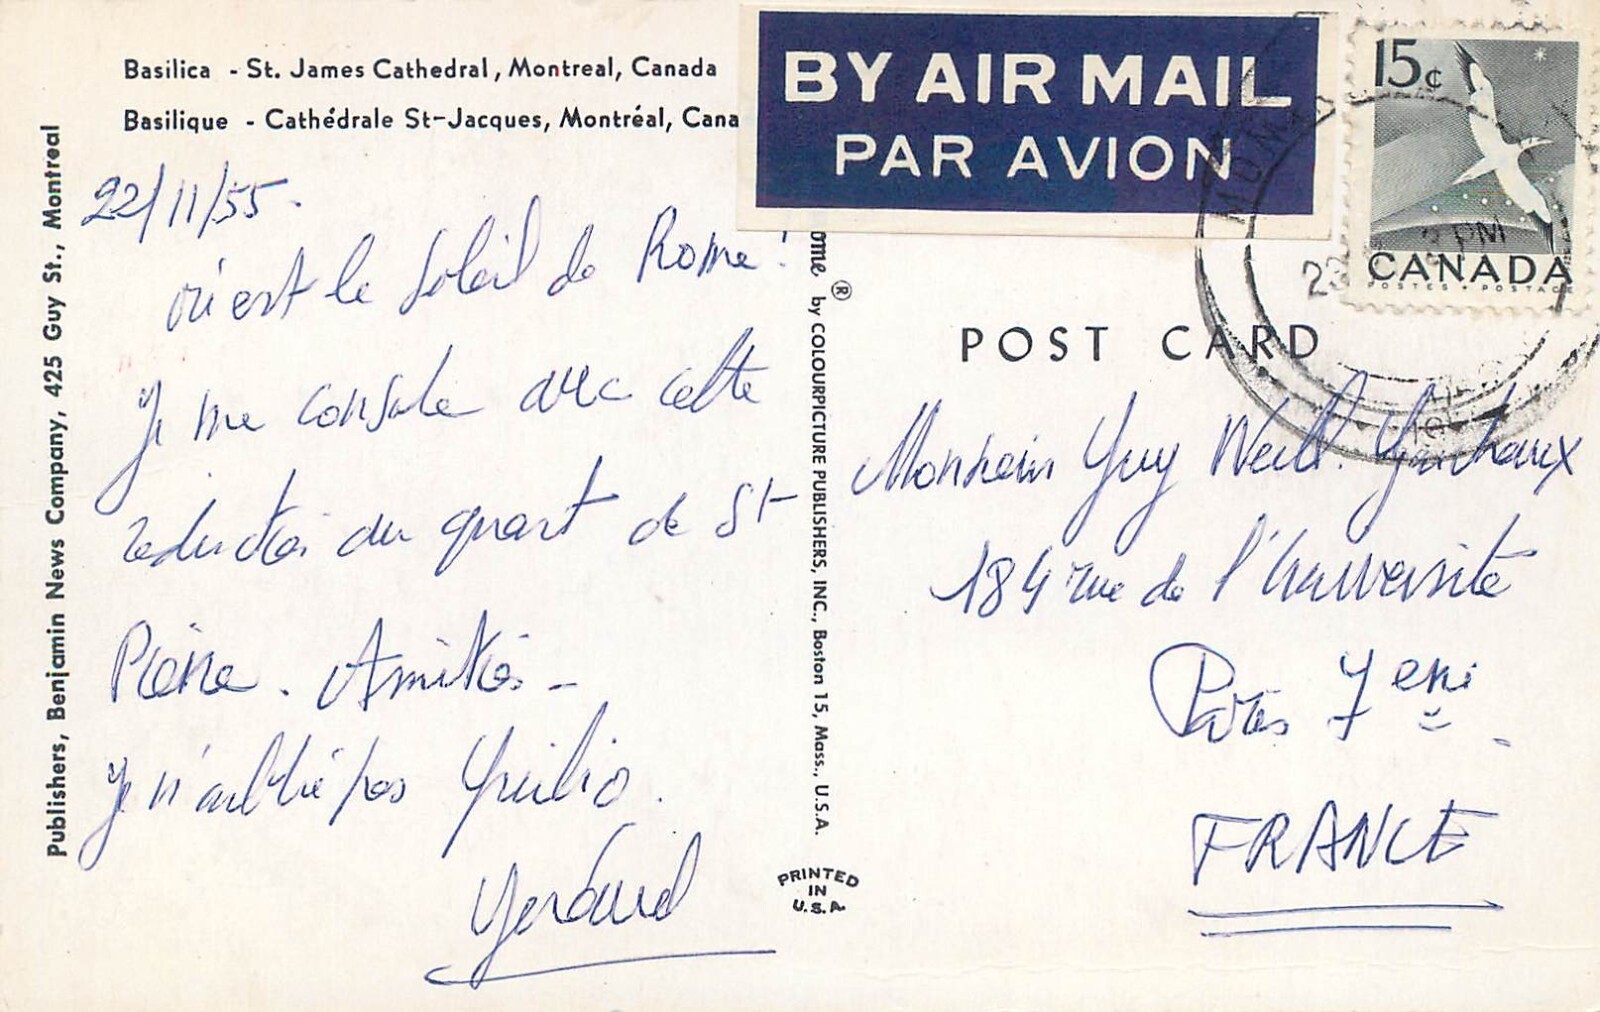 Basilica - St. James Cathedral, Montreal, Canada
Basilique - Cathédrale St-Jacques, Montréal, Cana
22/11/55.
où est le soleil de Rome!
Je me console avec cette
reduction au quart de St
Pierre. Amitiés -
Je n'oublie pas Giulio.
Gérard
Publishers, Benjamin News Company, 425 Guy St., Montreal
ome ® by COLOURPICTURE PUBLISHERS, INC., Boston 15, Mass., U.S.A.
PRINTED
IN
U.S.A.
BY AIR MAIL
PAR AVION
15c
CANADA
POSTES · POSTAGE
MON
23 PM
POST CARD
Monsieur Guy Weill. Goudchaux
184 rue de l'Université
Paris 7eme.
FRANCE